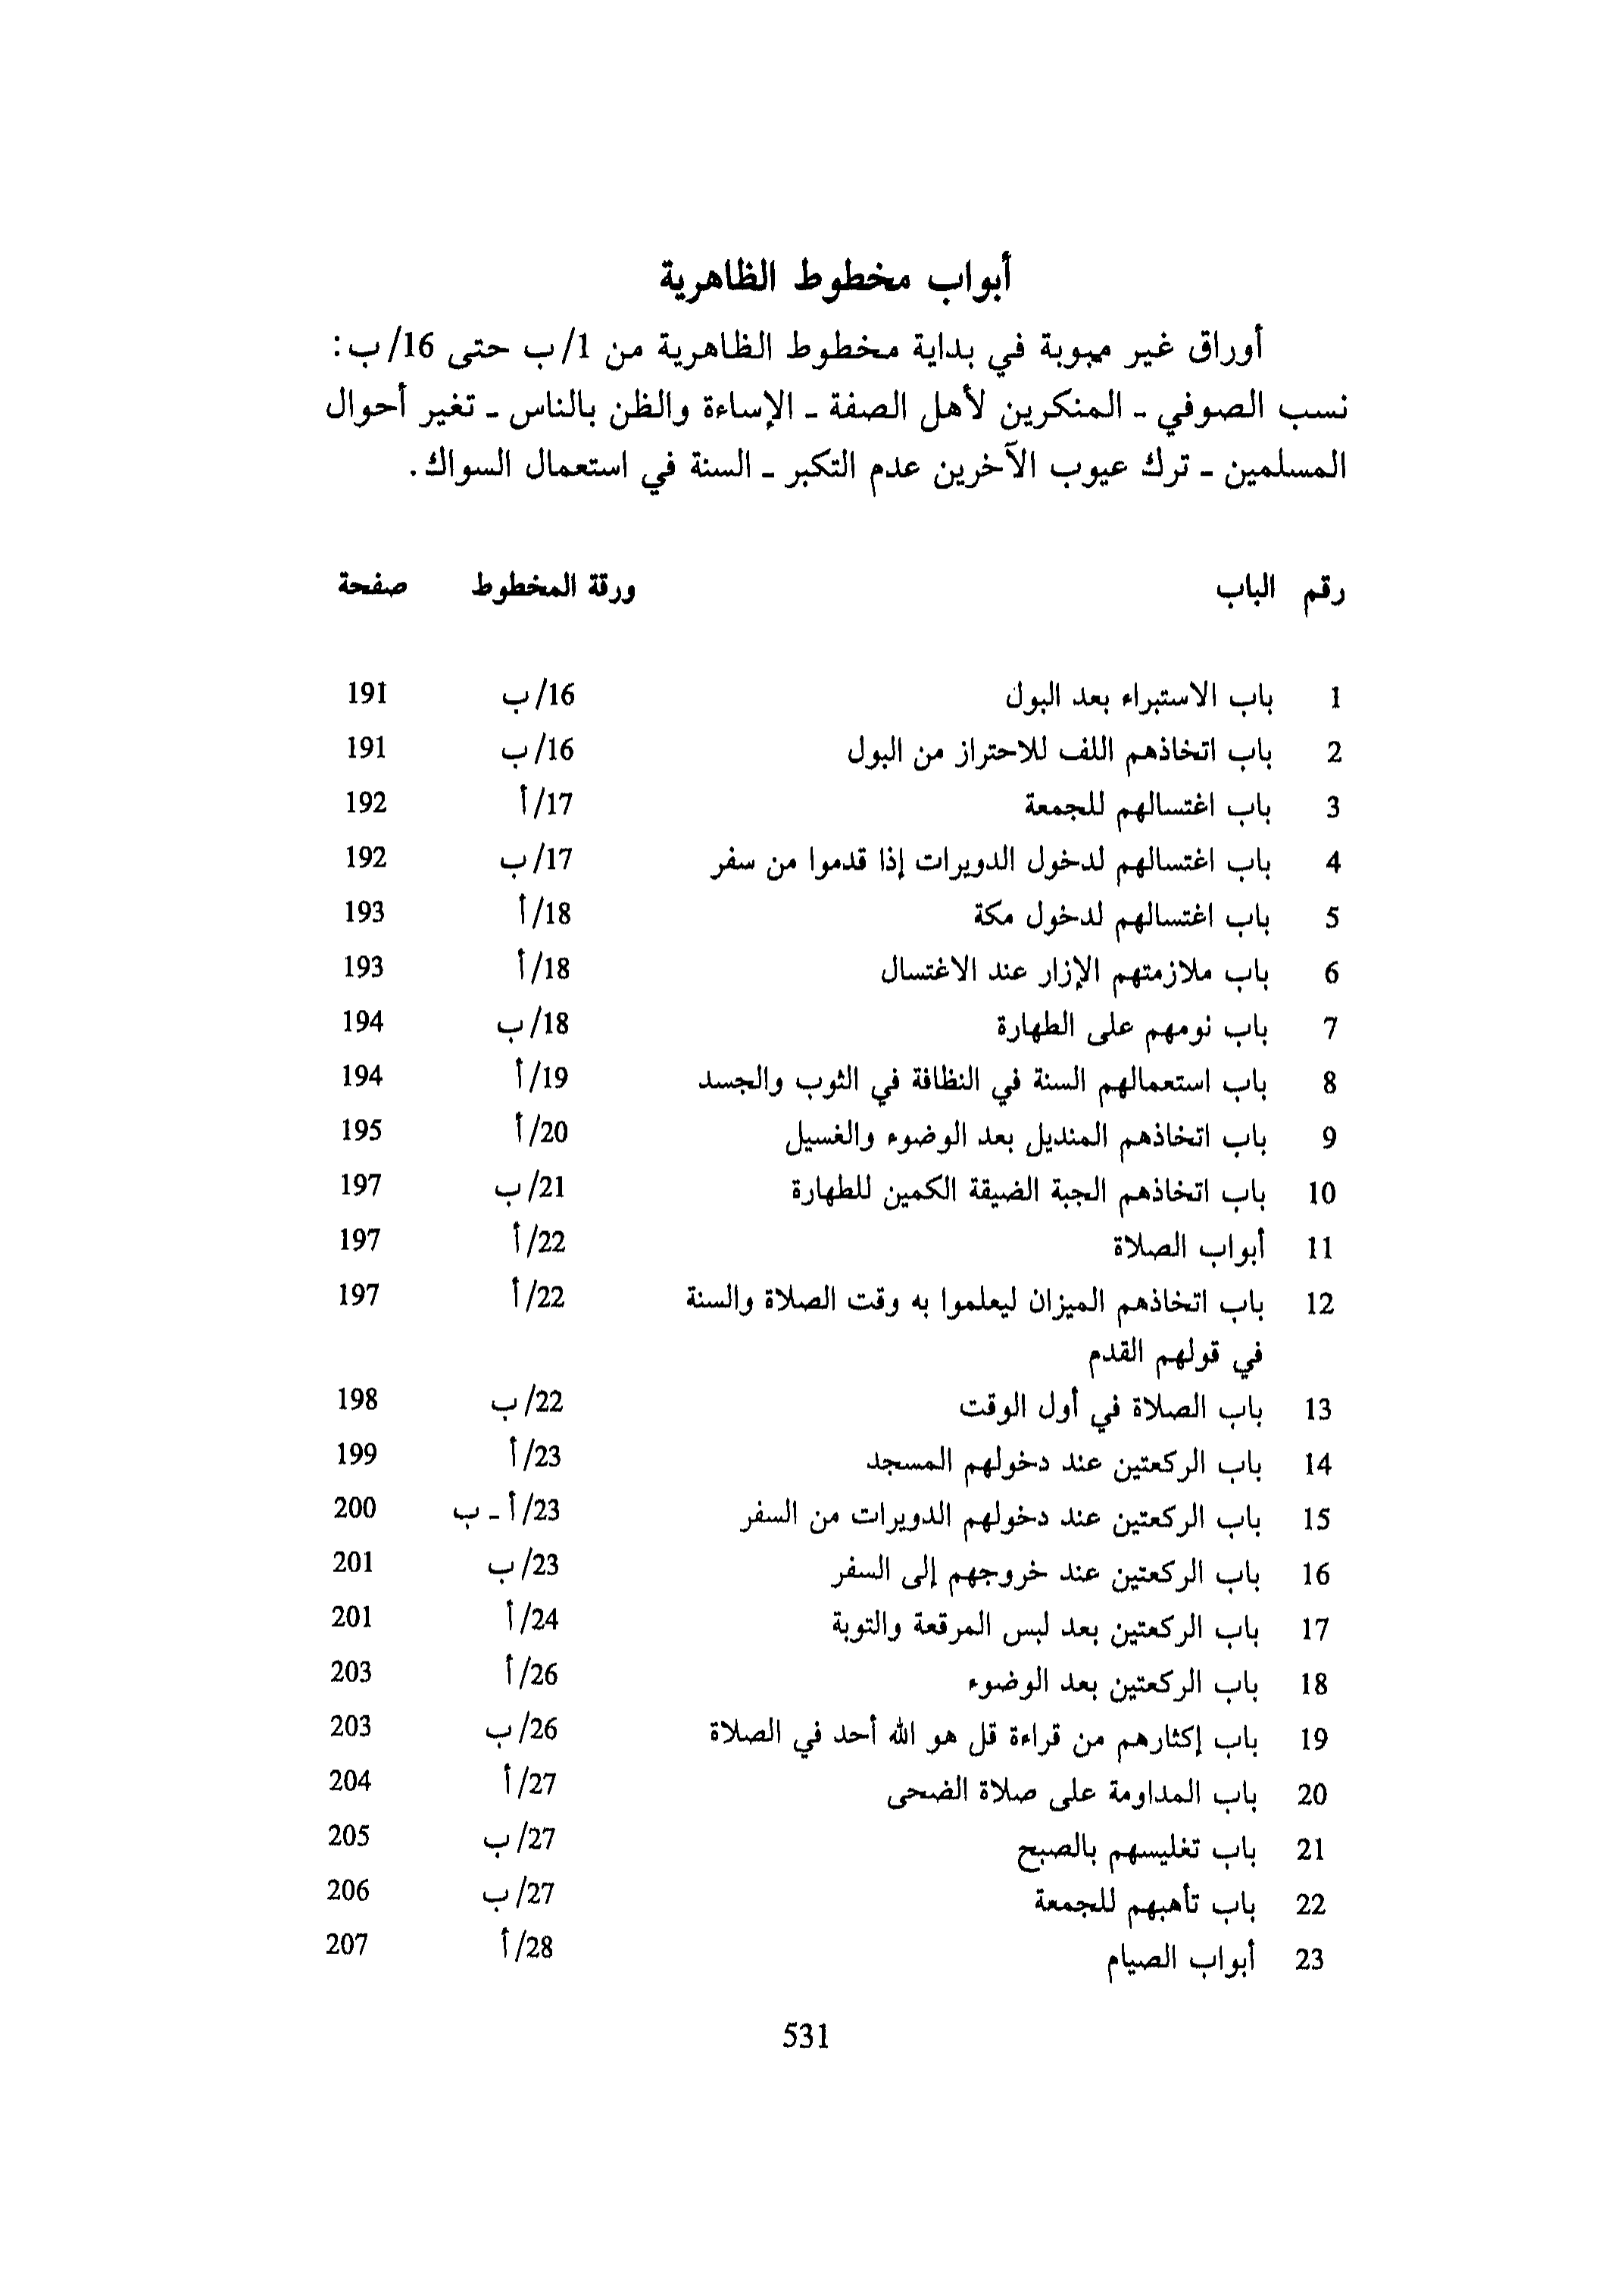 أبواب مخطوط الظاهرية
أوراق غير مبوبة في بداية مخطوط الظاهرية من 1/ب حتى 16/ب:
نسب الصوفي ـ المنكرين لأهل الصفة ـ الإساءة والظن بالناس ـ تغير أحوال
المسلمين ـ ترك عيوب الآخرين عدم التكبر ـ السنة في استعمال السواك.
رقم الباب ورقة المخطوط صفحة
1 باب الاستبراء بعد البول 16/ب 191
2 باب اتخاذهم اللف للاحتراز من البول 16/ب 191
3 باب اغتسالهم للجمعة 17/أ 192
4 باب اغتسالهم لدخول الدويرات إذا قدموا من سفر 17/ب 192
5 باب اغتسالهم لدخول مكة 18/أ 193
6 باب ملازمتهم الإزار عند الاغتسال 18/أ 193
7 باب نومهم على الطهارة 18/ب 194
8 باب استعمالهم السنة في النظافة في الثوب والجسد 19/أ 194
9 باب اتخاذهم المنديل بعد الوضوء والغسيل 20/أ 195
10 باب اتخاذهم الجبة الضيقة الكمين للطهارة 21/ب 197
11 أبواب الصلاة 22/أ 197
12 باب اتخاذهم الميزان ليعلموا به وقت الصلاة والسنة 22/أ 197
في قولهم القدم
13 باب الصلاة في أول الوقت 22/ب 198
14 باب الركعتين عند دخولهم المسجد 23/أ 199
15 باب الركعتين عند دخولهم الدويرات من السفر 23/أ ـ ب 200
16 باب الركعتين عند خروجهم إلى السفر 23/ب 201
17 باب الركعتين بعد لبس المرقعة والتوبة 24/أ 201
18 باب الركعتين بعد الوضوء 26/أ 203
19 باب إكثارهم من قراءة قل هو الله أحد في الصلاة 26/ب 203
20 باب المداومة على صلاة الضحى 27/أ 204
21 باب تغليسهم بالصبح 27/ب 205
22 باب تأهبهم للجمعة 27/ب 206
23 أبواب الصيام 28/أ 207
531